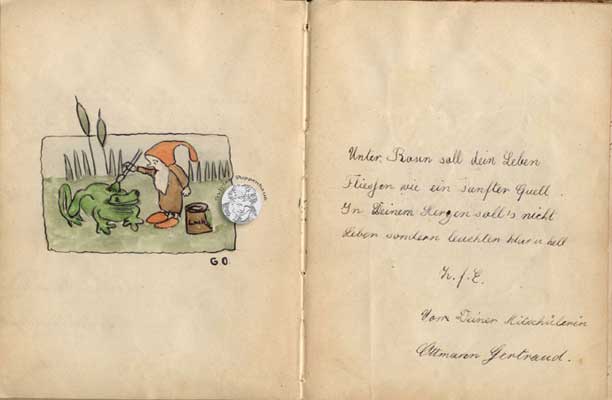 Lack
G O.
Unter Rosen soll dein Leben
Fliessen wie ein sanfter Quell.
In Deinem Herzen soll's nicht
beben sondern leuchten klar u hell
Z. f. E.
Von Deiner Mitschülerin
Ottmann Gertraud.